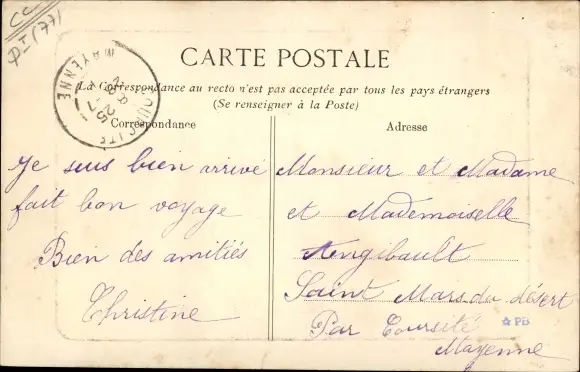 CC
DI (77)
CARTE POSTALE
La Correspondance au recto n'est pas acceptée par tous les pays étrangers
(Se renseigner à la Poste)
Correspondance
Je suis bien arrivé
fait bon voyage
Bien des amitiés
Christine
Adresse
Monsieur et Madame
et Mademoiselle
Angibault
Saint Mars du désert
Par Coursité
Mayenne
☆ PB
MAYENNE
25